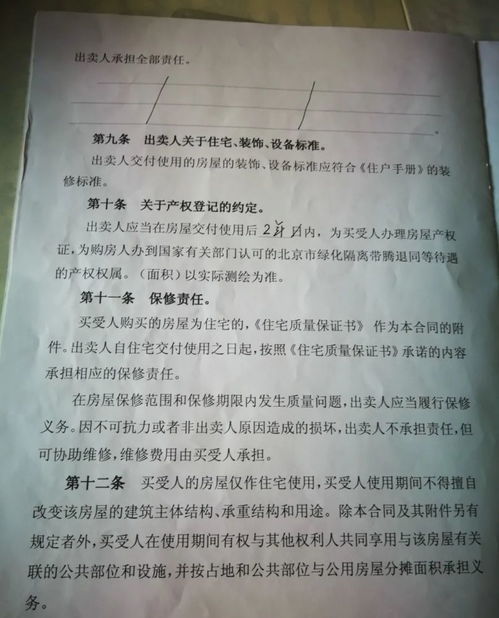 出卖人承担全部责任。
第九条 出卖人关于住宅、装饰、设备标准。
出卖人交付使用的房屋的装饰、设备标准应符合《住户手册》的装
修标准。
第十条 关于产权登记的约定。
出卖人应当在房屋交付使用后2年内,为买受人办理房屋产权
证,为购房人办到国家有关部门认可的北京市绿化隔离带腾退同等待遇
的产权权属。(面积)以实际测绘为准。
第十一条 保修责任。
买受人购买的房屋为住宅的,《住宅质量保证书》 作为本合同的附
件。出卖人自住宅交付使用之日起,按照《住宅质量保证书》承诺的内容
承担相应的保修责任。
在房屋保修范围和保修期限内发生质量问题,出卖人应当履行保修
义务。因不可抗力或者非出卖人原因造成的损坏,出卖人不承担责任,但
可协助维修,维修费用由买受人承担。
第十二条 买受人的房屋仅作住宅使用,买受人使用期间不得擅自
改变该房屋的建筑主体结构、承重结构和用途。除本合同及其附件另有
规定者外,买受人在使用期间有权与其他权利人共同享用与该房屋有关
联的公共部位和设施,并按占地和公共部位与公用房屋分摊面积承担义
务。